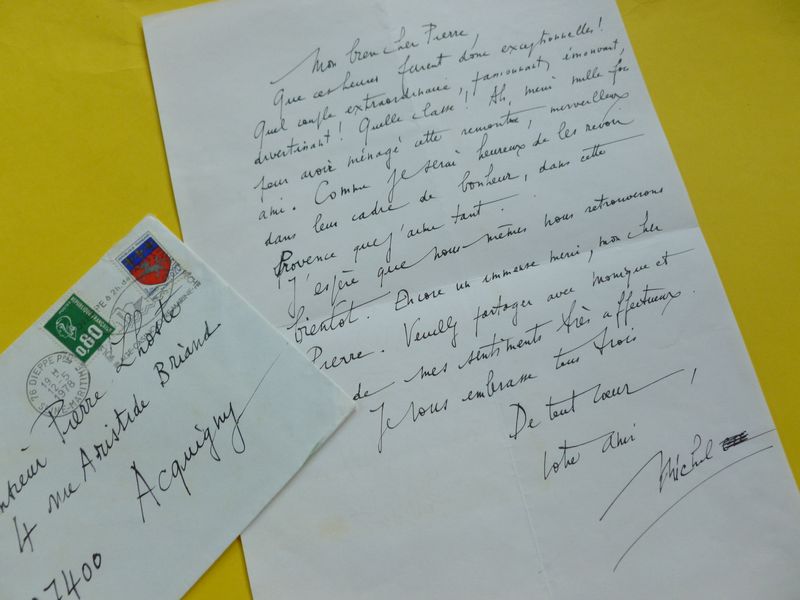 Mon bien cher Pierre,
Que ces heures furent donc exceptionnelles !
Quel couple extraordinaire, passionnant, émouvant,
divertissant ! Quelle classe ! Ah, merci mille fois
pour avoir ménagé cette rencontre, merveilleux
ami. Comme je serai heureux de les revoir
dans leur cadre de bonheur, dans cette
Provence que j'aime tant.
J'espère que nous-mêmes nous retrouverons
bientôt. Encore un immense merci, mon cher
Pierre. Veuillez partager avec Monique et
de mes sentiments très affectueux.
Je vous embrasse tous trois
De tout cœur,
Votre ami
Michel
REPUBLIQUE FRANÇAISE
0,80
76 DIEPPE PPAL
19 H
12-5
1978
SEINE-MARITIME
Monsieur Pierre Lhoste
4 rue Aristide Briand
Acquigny
27400